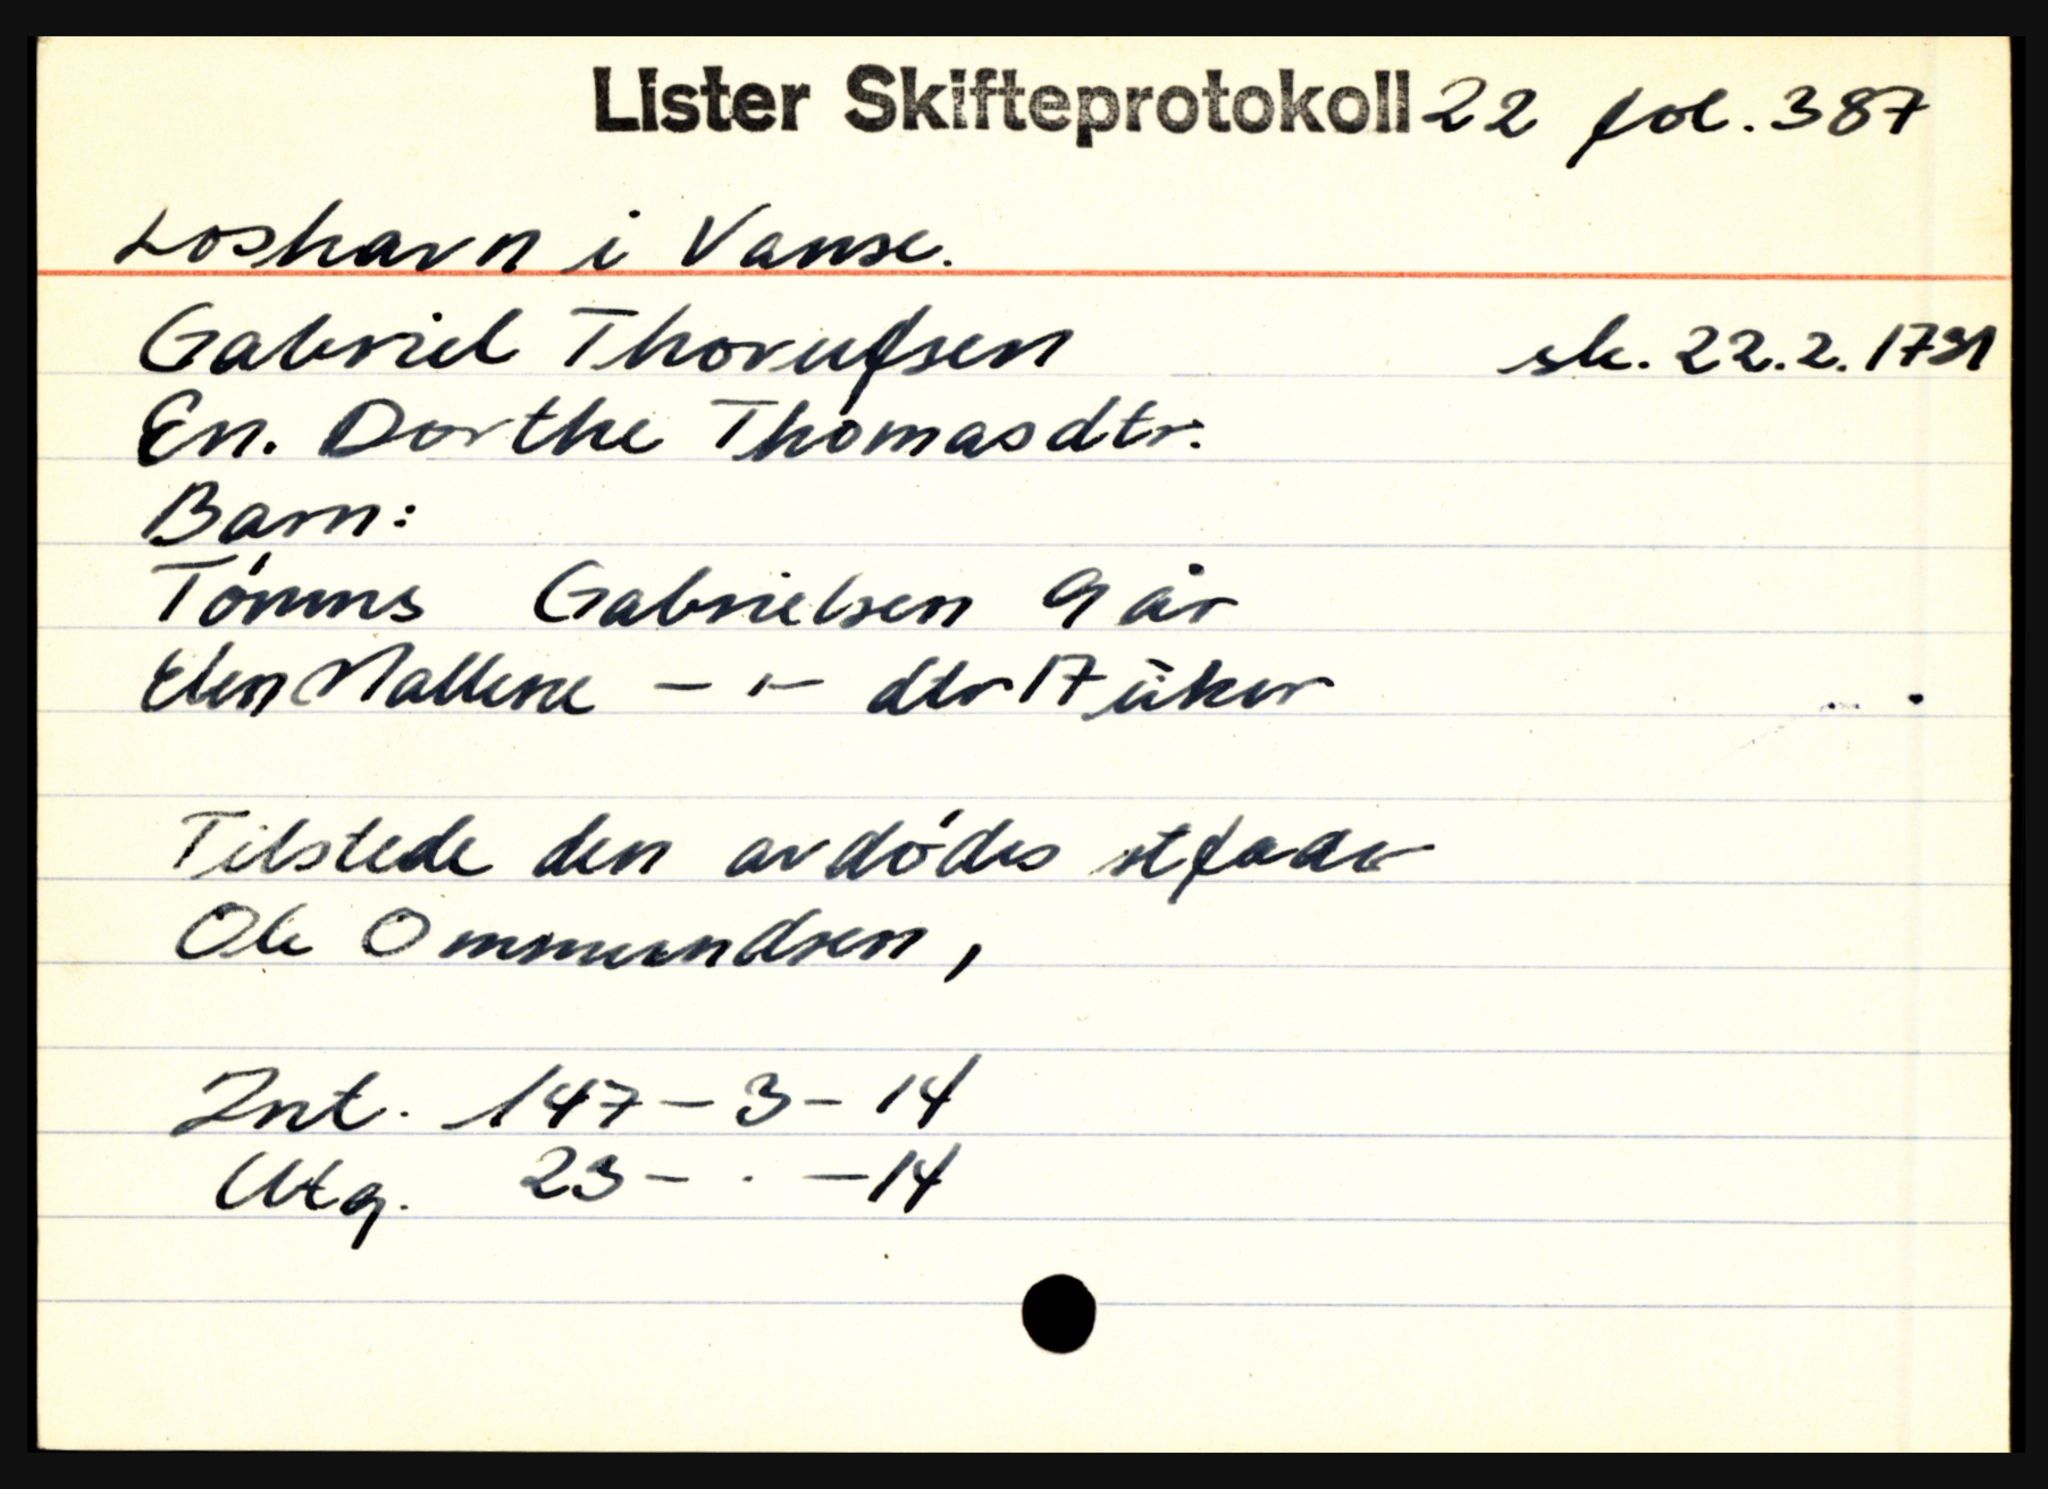 Lister Skifteprotokoll 22 fol. 387
Loshavn i Vanse.
Gabriel Thorufsen sk. 22.2.1791
En. Dorthe Thomasdtr.
Barn:
Tónnes Gabrielsen 9 år
Elen Mallene - " - dtr 17 uker
Tilstede den avdódes stfader
Ole Ommundsen,
Int. 147 - 3 - 14
Utg. 23 - . - 14